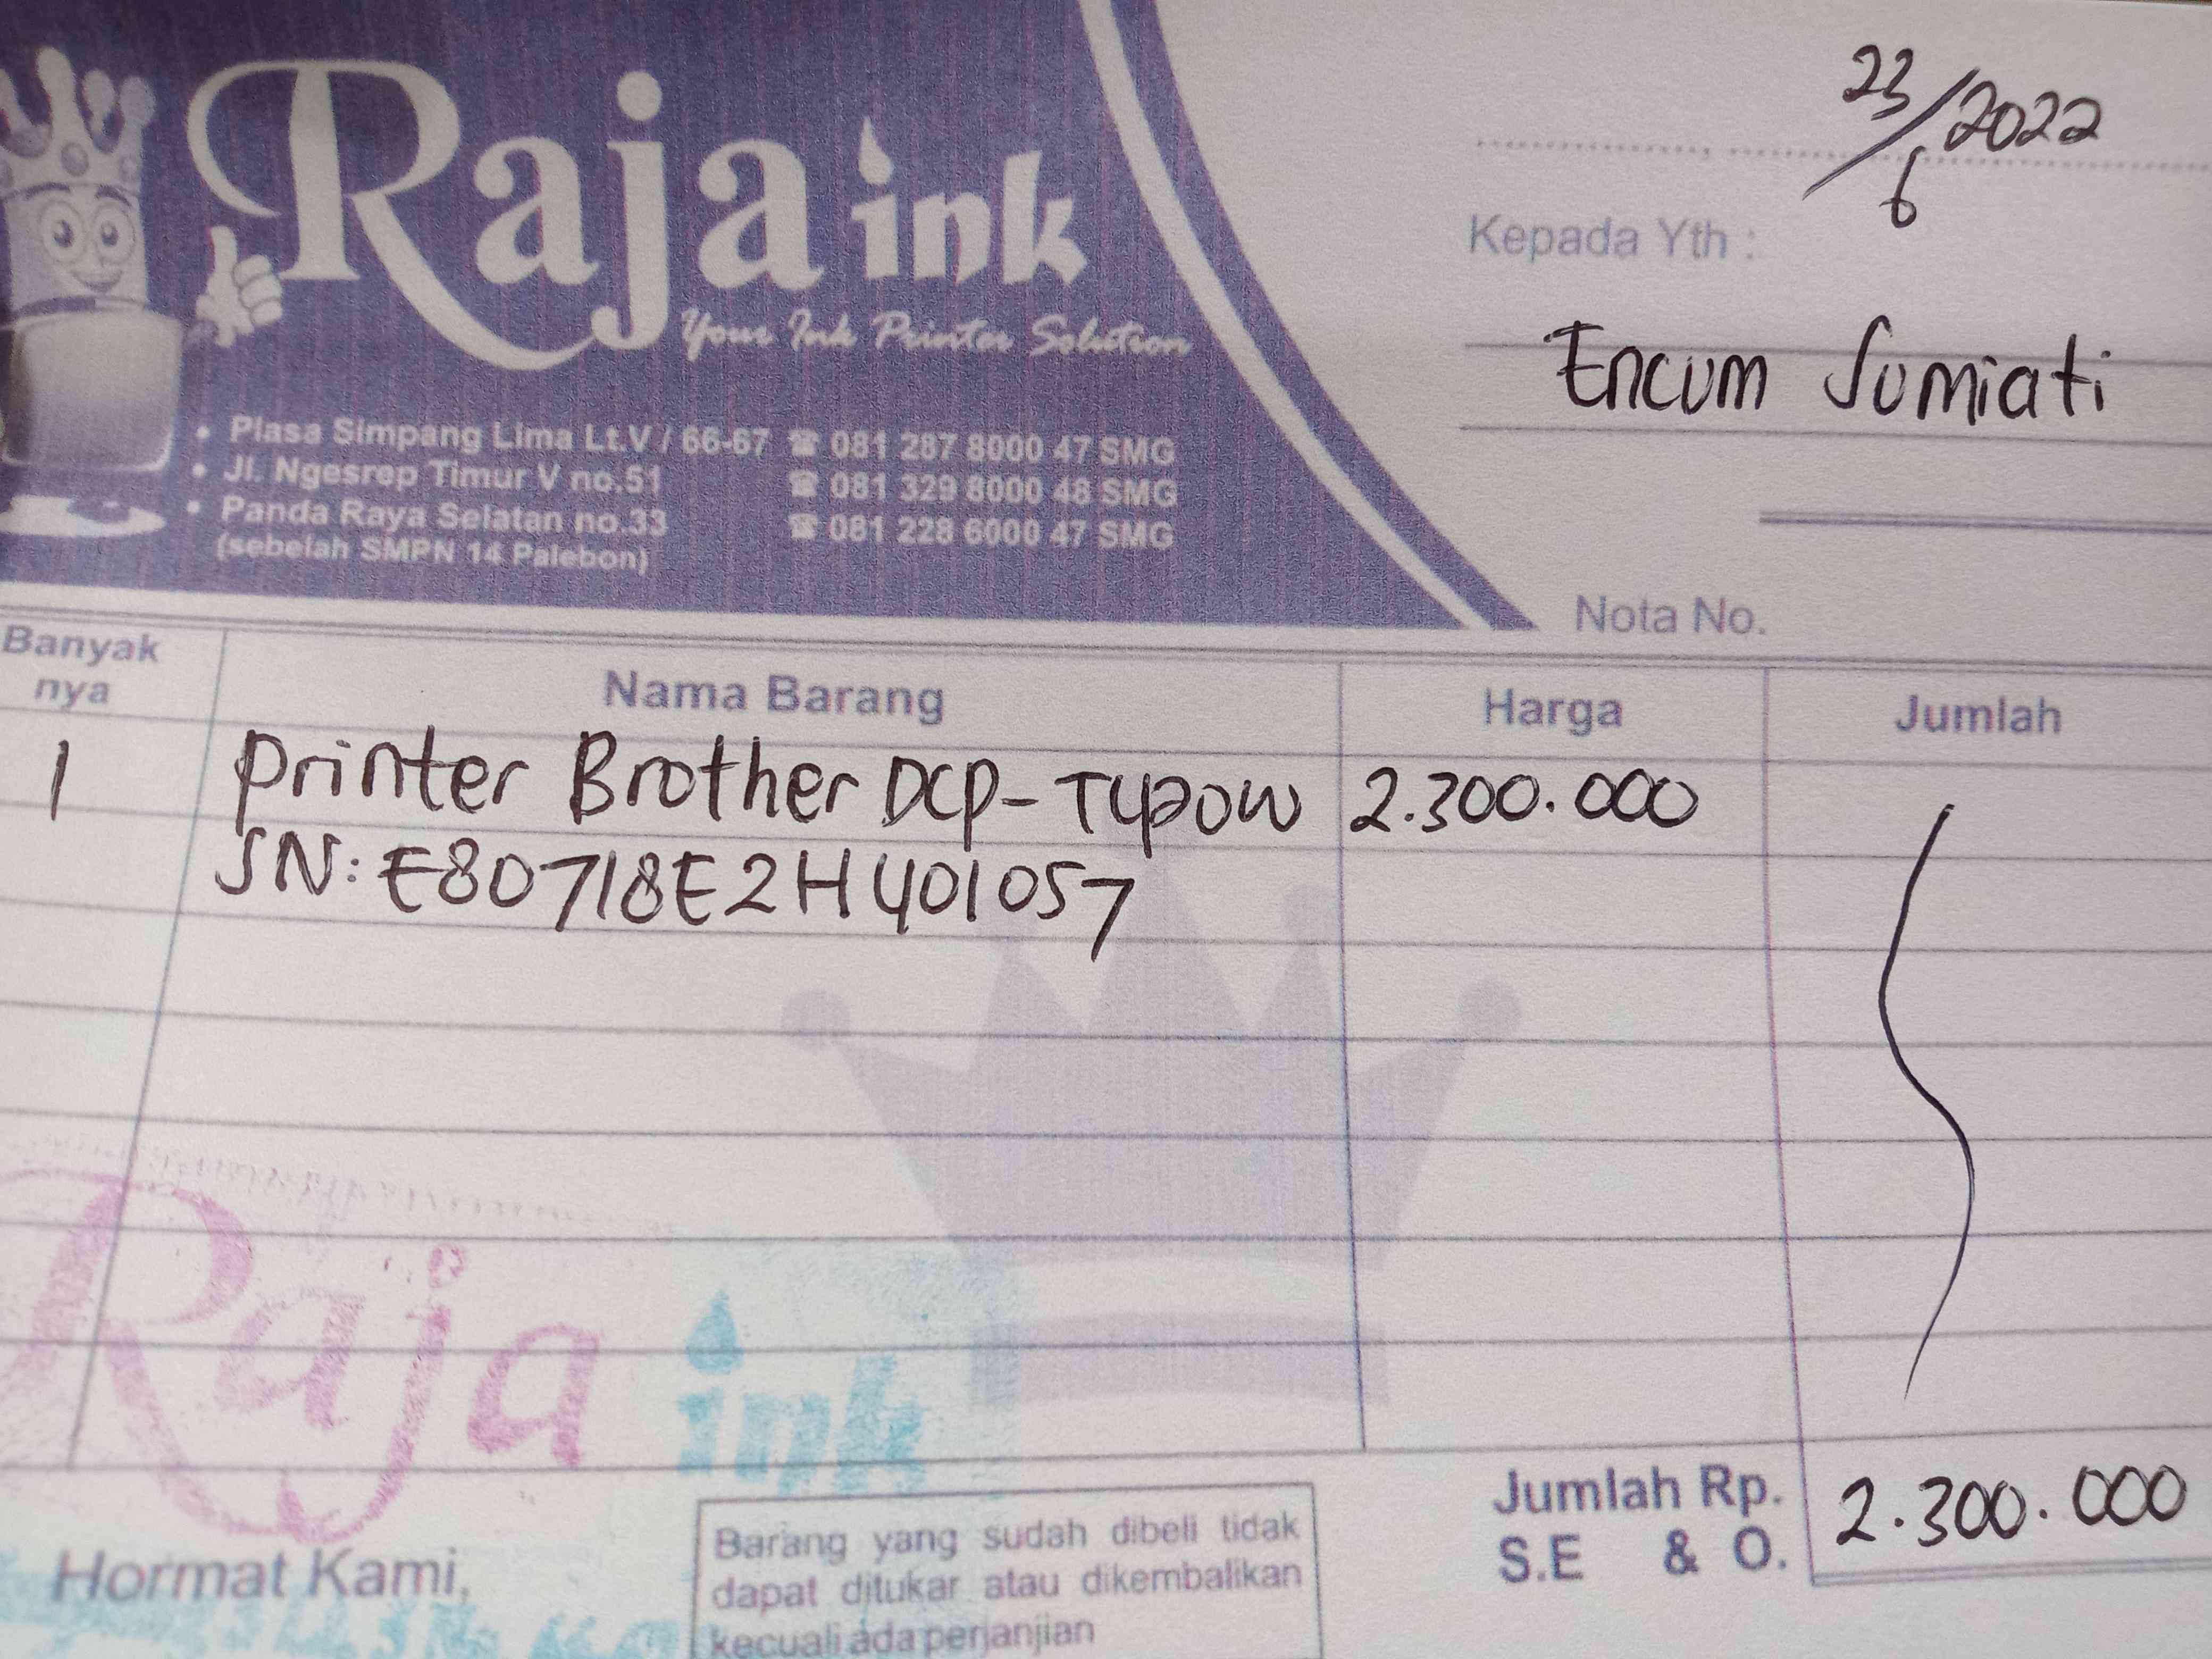 Raja ink
Your Ink Printer Solution
• Plasa Simpang Lima Lt.V / 66-67 ☎ 081 287 8000 47 SMG
• Jl. Ngesrep Timur V no.51 ☎ 081 329 8000 48 SMG
• Panda Raya Selatan no.33 ☎ 081 228 6000 47 SMG
(sebelah SMPN 14 Palebon)
23/6/2022
Kepada Yth :
Encum Sumiati
Nota No.
Banyak nya Nama Barang Harga Jumlah
1 Printer Brother DCP-T420W 2.300.000
SN: E80718E2H401057
Raja ink
Jumlah Rp. 2.300.000
S.E & O.
Hormat Kami,
Barang yang sudah dibeli tidak
dapat ditukar atau dikembalikan
kecuali ada perjanjian